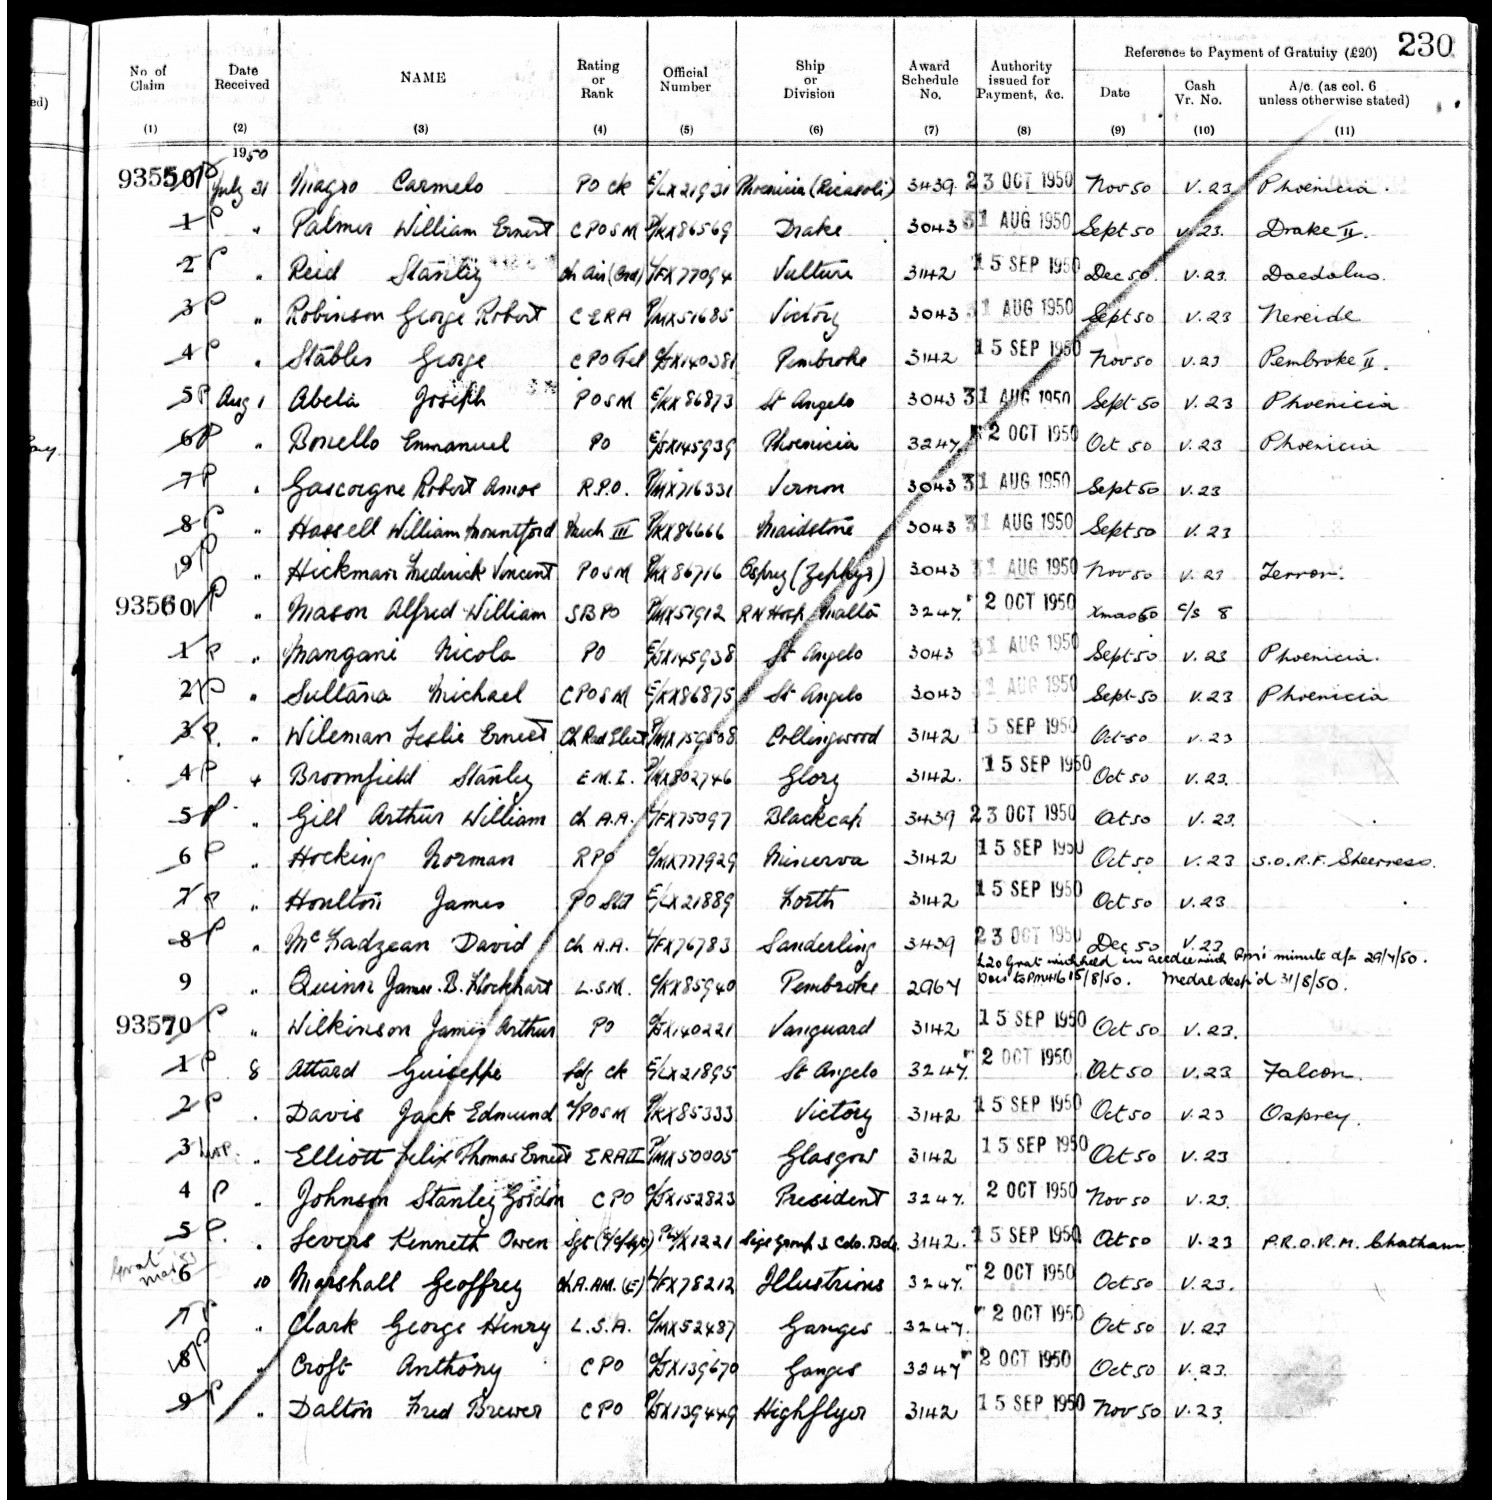 230
Reference to Payment of Gratuity (£20)
No of Claim Date Received NAME Rating or Rank Official Number Ship or Division Award Schedule No. Authority issued for Payment, &c. Date Cash Vr. No. A/c. (as col. 6 unless otherwise stated)
(1) (2) (3) (4) (5) (6) (7) (8) (9) (10) (11)
1950
93550 P July 31 Magro Carmelo PO Ck E/LX21931 Phoenicia (Ricasoli) 3439 23 OCT 1950 Nov 50 V.23 Phoenicia.
1 P " Palmer William Ernest CPOSM P/KX86569 Drake 3043 31 AUG 1950 Sept 50 V.23. Drake II.
2 P " Reid Stanley Ch Air (Ord) L/FX77094 Vulture 3142 15 SEP 1950 Dec 50. V.23. Daedalus.
3 P " Robinson George Robert CERA P/MX51685 Victory 3043 31 AUG 1950 Sept 50 V.23 Nereide
4 P " Stables George CPO Tel C/JX140381 Pembroke 3142 15 SEP 1950 Nov 50 V.23 Pembroke II.
5 P Aug 1 Abela Joseph POSM E/KX86873 St Angelo 3043 31 AUG 1950 Sept 50 V.23 Phoenicia
6 P " Bonello Emmanuel PO E/JX145939 Phoenicia 3247. 2 OCT 1950 Oct 50 V.23 Phoenicia
7 P " Gascoigne Robert Amos R.P.O. P/MX716331 Vernon 3043 31 AUG 1950 Sept 50 V.23
8 P " Hassell William Mountford Mech III P/KX86666 Maidstone 3043 31 AUG 1950 Sept 50 V.23
9 P " Hickman Frederick Vincent POSM P/KX86716 Osprey (Zephyr) 3043 31 AUG 1950 Nov 50 V.23 Terror.
93560 P " Mason Alfred William SBPO P/MX51912 RN Hosp. Malta 3247. 2 OCT 1950 Xmas 50 C/S 8
1 P " Mangani Nicola PO E/JX145938 St Angelo 3043 31 AUG 1950 Sept 50 V.23 Phoenicia.
2 P " Sultana Michael CPOSM E/KX86875 St Angelo 3043 31 AUG 1950 Sept 50 V.23 Phoenicia
3 P. " Wileman Leslie Ernest Ch Rad Elect P/MX759508 Collingwood 3142 15 SEP 1950 Oct 50 V.23
4 P 4 Broomfield Stanley E.M.I. P/MX802746 Glory 3142. 15 SEP 1950 Oct 50 V.23.
5 P " Gill Arthur William Ch A.A. L/FX75097 Blackcap 3439 23 OCT 1950 Oct 50 V.23.
6 P " Hocking Norman RPO C/MX777929 Minerva 3142 15 SEP 1950 Oct 50 V.23 S.O.R.F. Sheerness.
7 P " Houlton James PO Std E/LX21889 Forth 3142 15 SEP 1950 Oct 50 V.23
8 P " McFadzean David Ch A.A. L/FX76783 Sanderling 3439 23 OCT 1950 Dec 50 V.23
£20 Grat withheld in accdce with PM's minute d/- 29/4/50.
9 " Quinn James. B. Flockhart L.S.M. C/KX85940 Pembroke 2967 Docs to PM416 15/8/50. Medal desp'd 31/8/50.
93570 P " Wilkinson James Arthur PO C/JX140221 Vanguard 3142 15 SEP 1950 Oct 50 V.23.
1 P 8 Attard Guiseppe Ldg Ck E/LX21895 St Angelo 3247. 2 OCT 1950 Oct 50 V.23 Falcon.
2 P " Davis Jack Edmund A/POSM P/KX85333 Victory 3142 15 SEP 1950 Oct 50 V.23 Osprey.
3 " Elliott Felix Thomas Ernest ERAII P/MX50005 Glasgow 3142 15 SEP 1950 Oct 50 V.23
4 P " Johnson Stanley Gordon CPO C/JX152823 President 3247. 2 OCT 1950 Nov 50 V.23.
5 P. " Severs Kenneth Owen Sgt 1221 3 Cdo. Bde. 3142. 15 SEP 1950 Oct 50 V.23 P.R.O.R.M. Chatham
6 10 Marshall Geoffrey Ch A.AM. (E) L/FX78212 Illustrious 3247. 2 OCT 1950 Oct 50 V.23.
7 P " Clark George Henry L.S.A. C/MX52487 Ganges 3247. 2 OCT 1950 Oct 50 V.23
8 P " Croft Anthony CPO C/JX139670 Ganges 3247 2 OCT 1950 Oct 50 V.23.
9 P " Dalton Fred Brewer CPO P/JX139449 Highflyer 3142 15 SEP 1950 Nov 50 V.23.